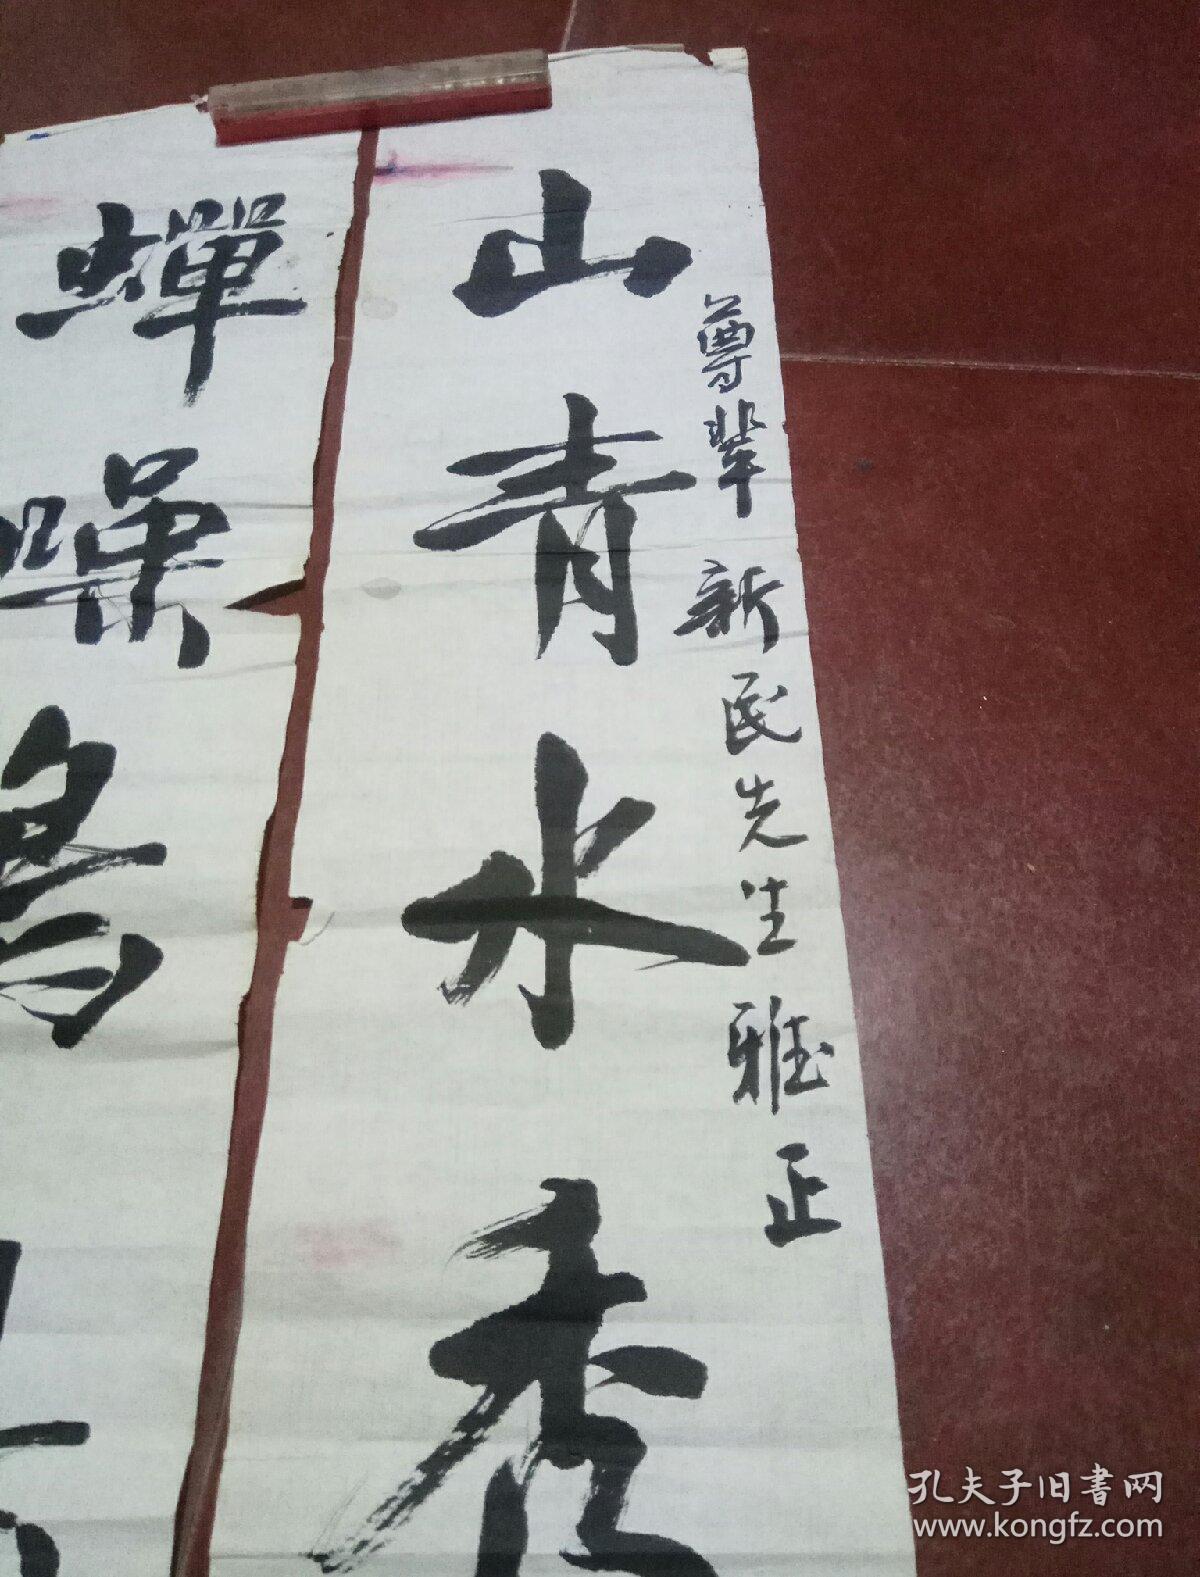 山青水秀
尊辈 新民先生雅正
蝉噪
孔夫子旧书网
www.kongfz.com